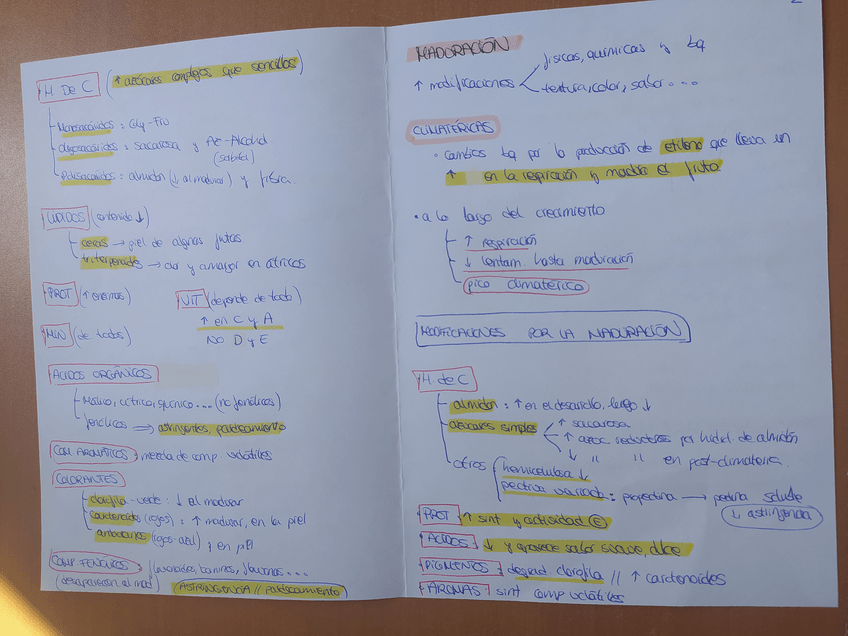 H DE C (↑ azúcares complejos que sencillos)
- Monosacáridos: Glu-Fru
- Oligosacáridos: sacarosa y Ac-Alcohol
(sorbitol)
- Polisacáridos: almidón (↓ al madurar) y fibra.
LÍPIDOS (contenido ↓)
- ceras → piel de algunas frutas
- triterpenoides → olor y amargor en cítricos
PROT (↑ enzimas)
VIT (depende de todo)
↑ en C y A
NO D y E
MIN (de todos)
ÁCIDOS ORGÁNICOS
- Málico, cítrico, quínico... (no fenólicos)
- fenólicos → astringentes, pardeamiento
COM. AROMÁTICOS: mezcla de comp. volátiles
COLORANTES
- clorofila - verde: ↓ al madurar
- carotenoides (rojos): ↑ madurar, en la piel
- antocianos (rojos-azul) ; en piel
COMP. FENÓLICOS: flavonoides, taninos, flavonas...
(desaparecen al mad) ASTRINGENCIA // pardeamiento
2
MADURACIÓN
↑ modificaciones < físicas, químicas y bq
textura, color, sabor...
CLIMATÉRICAS
• cambios bq por la producción de etileno que lleva un
↑ en la respiración y madura el fruto
• a lo largo del crecimiento
- ↑ respiración
- ↓ lentam. hasta maduración
- pico climatérico
MODIFICACIONES POR LA MADURACIÓN
H. de C
- almidón: ↑ en el desarrollo, luego ↓
- azúcares simples < ↑ sacarosa
↑ azúc. reductores por hidról. de almidón
↓ " " en post-climatéria.
- otros { hemicelulosa ↓
pectina variada: propectina → pectina soluble
↓ astringencia
PROT ↑ sint y actividad E
ÁCIDOS ↓ y aparece sabor suave, dulce
PIGMENTOS: degrad. clorofila // ↑ carotenoides
AROMAS: sint comp volátiles